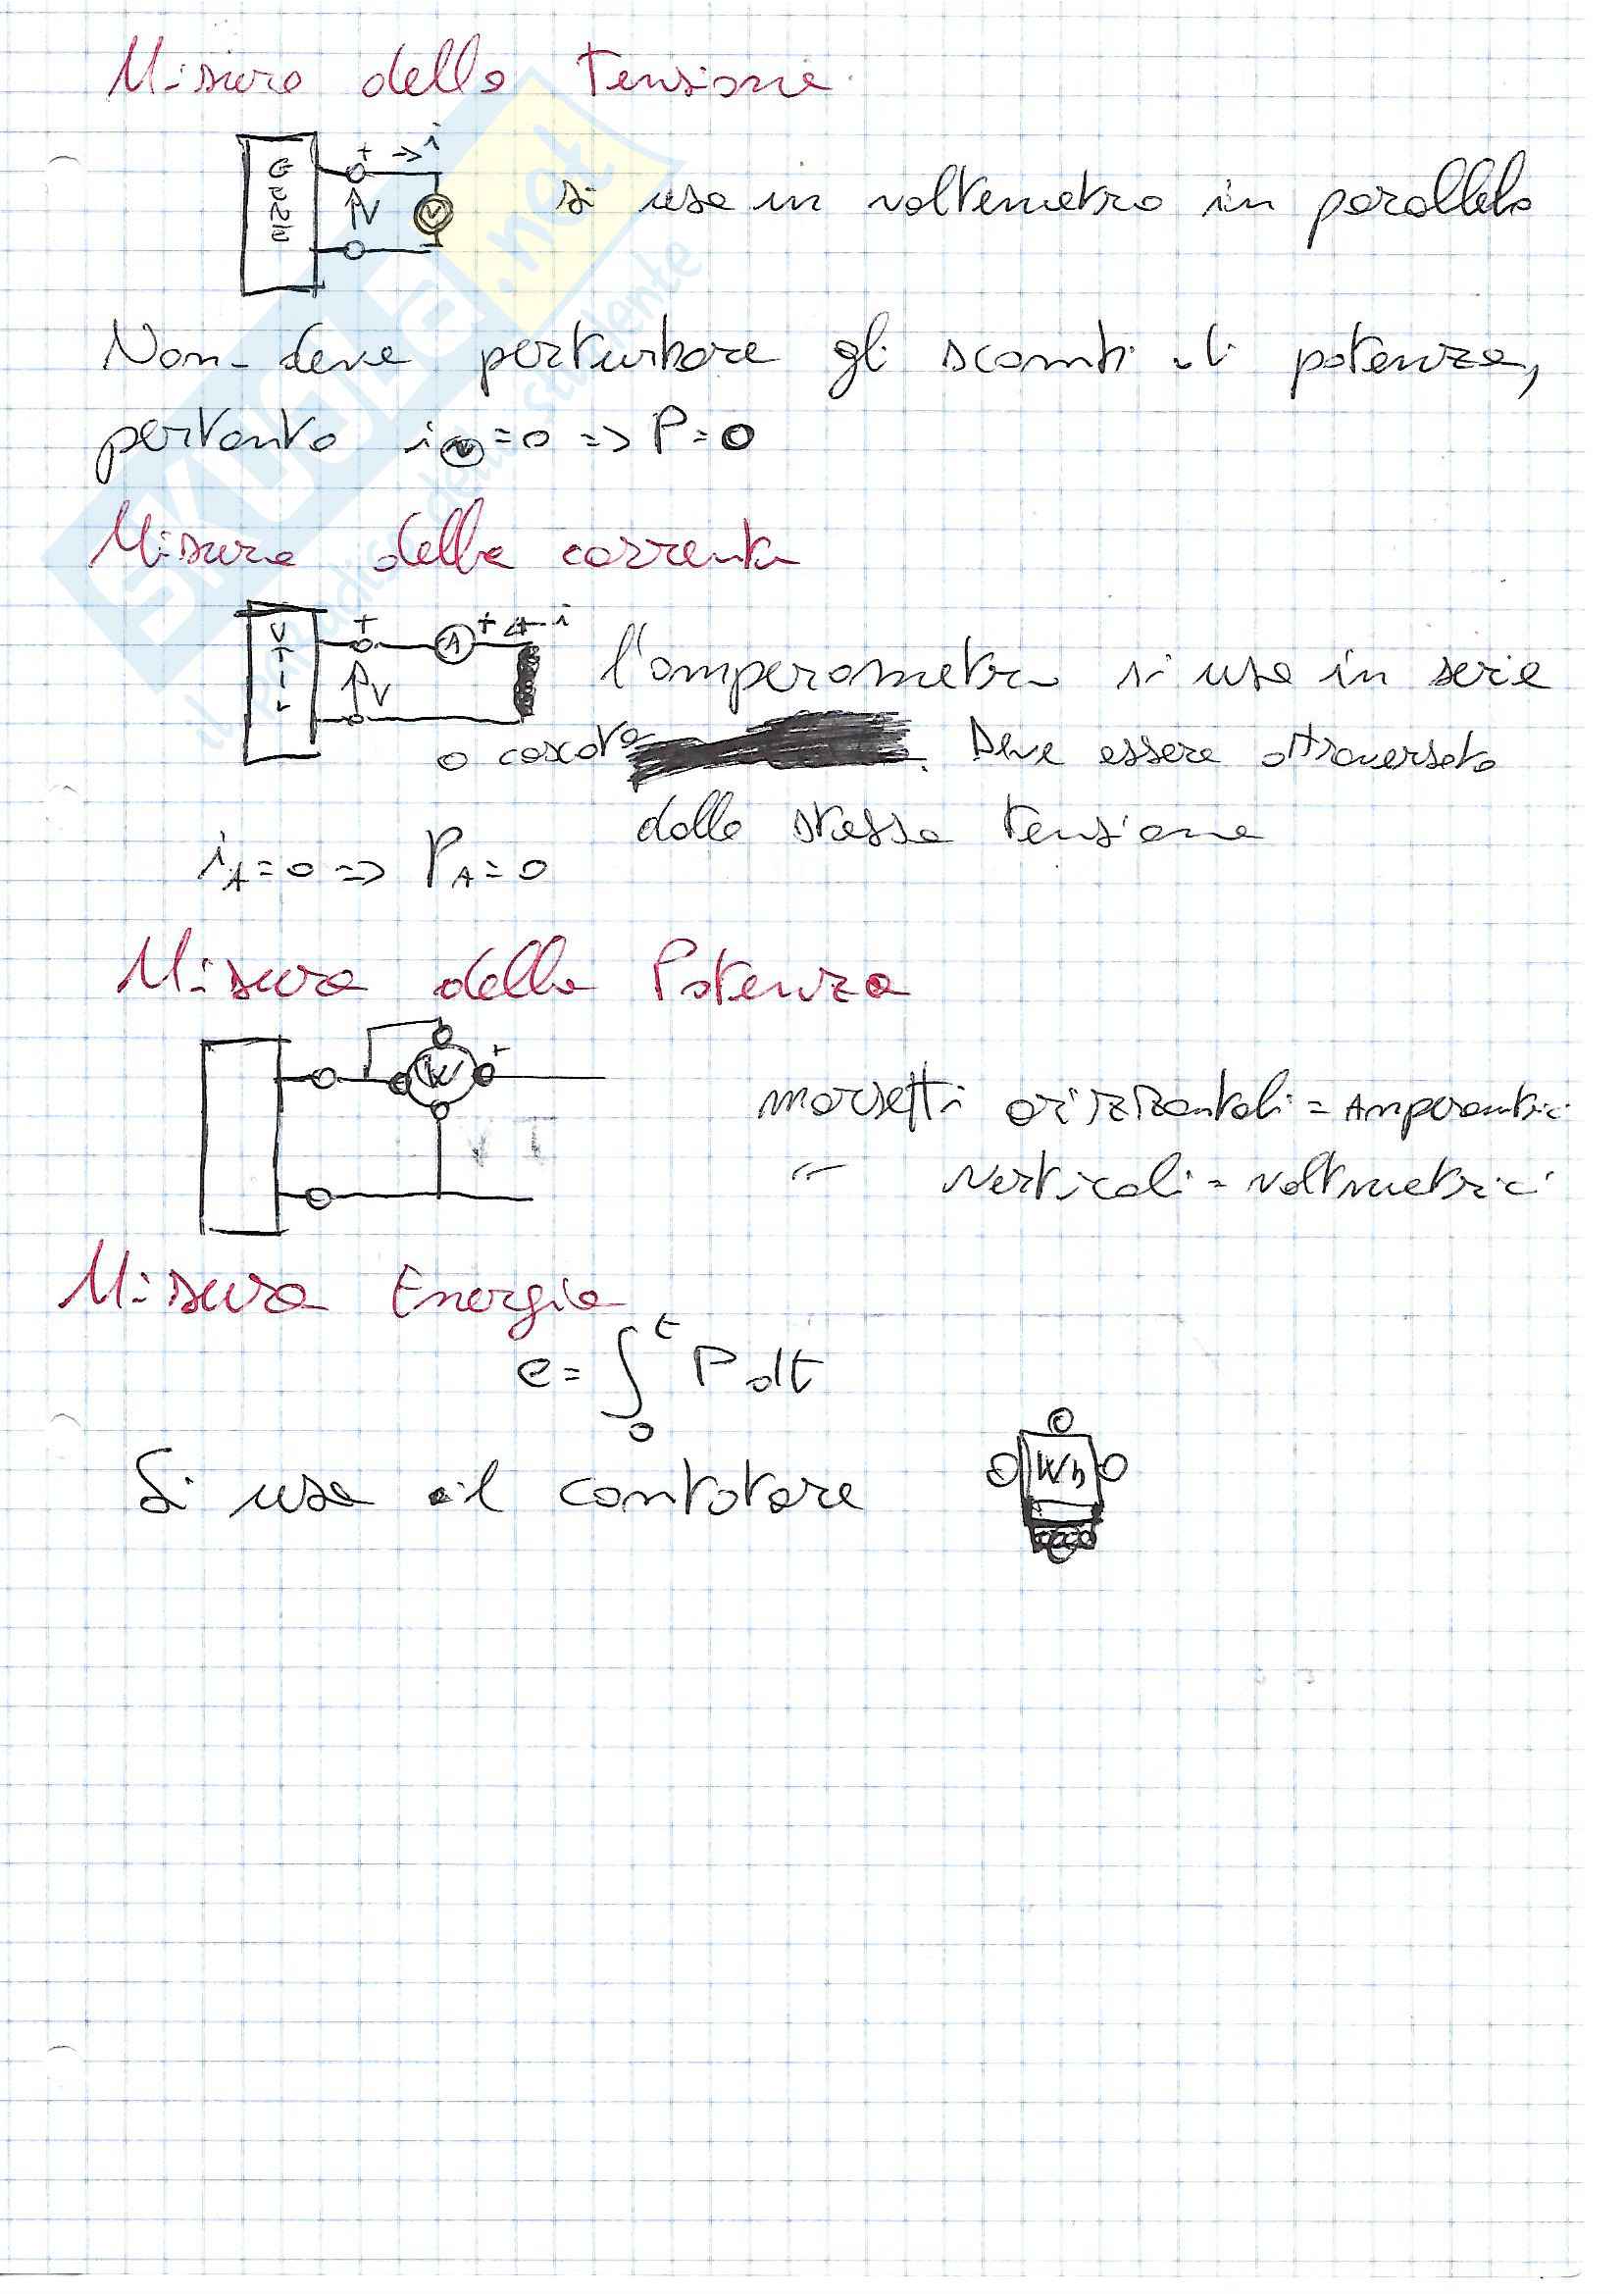 Misura della Tensione
GEN
+ → i
V
V
si usa un voltemetro in parallelo
Non deve perturbare gli scambi di potenza,
pertanto i V = 0 => P = 0
Misura della corrente
UTIL
+ A + ← i
V
l'amperometro si usa in serie
o cascata . Deve essere attraversato
dalla stessa tensione
i_A = 0 => P_A = 0
Misura della Potenza
W +
morsetti orizzontali = Amperometrici
" verticali = voltmetrici
Misura Energia
e = ∫₀ᵗ P dt
Si usa il contatore
Wh
SKUOLA.net
il paradiso dello studente